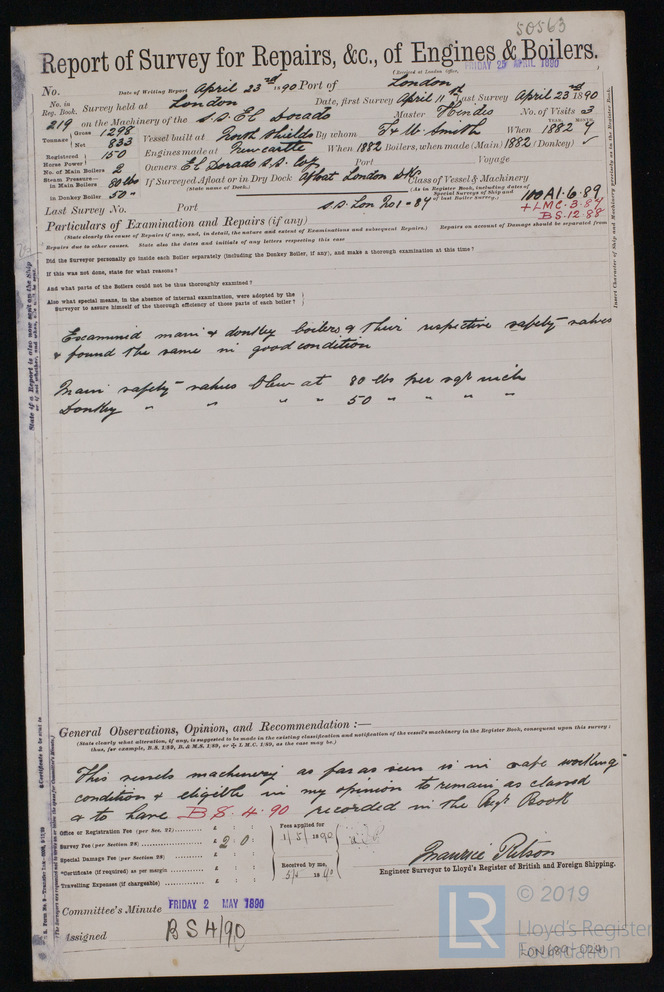 50563
Report of Survey for Repairs, &c., of Engines & Boilers.
(Received at London Office, FRIDAY 25 APRIL 1890
No. Date of Writing Report April 23rd 1890 Port of London
No. in Reg. Book. Survey held at London Date, first Survey April 11th Last Survey April 23rd 1890
219 on the Machinery of the S.S. El Dorado Master No. of Visits 3
Tonnage Gross 1298 Net 833 Vessel built at North Shields By whom T & W Smith When 1882 YEAR. MONTH. 9
Registered Horse Power 150 Engines made at Newcastle When 1882 Boilers, when made (Main) 1882 (Donkey) ✓
No. of Main Boilers 2 Owners El Dorado S.S. Coy Port Voyage
Steam Pressure in Main Boilers 80 lbs If Surveyed Afloat or in Dry Dock Afloat London Dk Class of Vessel & Machinery
(State name of Dock.) (As in Register Book, including dates of Special Surveys of Ship and of last Boiler survey.) 100A1.6.89
in Donkey Boiler 50 " + LMC.3.87
Last Survey No. Port S.S. Lon No 1-87 BS.12.88
Particulars of Examination and Repairs (if any)
(State clearly the cause of Repairs if any, and, in detail, the nature and extent of Examinations and subsequent Repairs.) Repairs on account of Damage should be separated from
Repairs due to other causes. State also the dates and initials of any letters respecting this case
Did the Surveyor personally go inside each Boiler separately (including the Donkey Boiler, if any), and make a thorough examination at this time?
If this was not done, state for what reasons?
And what parts of the Boilers could not be thus thoroughly examined?
Also what special means, in the absence of internal examination, were adopted by the
Surveyor to assure himself of the thorough efficiency of those parts of each boiler?
Examined main & donkey boilers & their respective safety valves
& found the same in good condition
Main safety-valves blew at 80 lbs per sqr inch
Donkey " " " " 50 " " " "
General Observations, Opinion, and Recommendation :—
(State clearly what alteration, if any, is suggested to be made in the existing classification and notification of the vessel's machinery in the Register Book, consequent upon this survey;
thus, for example, B.S. 1/89, B. & M.S. 1/89, or ✠ L.M.C. 1/89, as the case may be.)
This vessels machinery as far as seen is in safe working
condition & eligible in my opinion to remain as classed
& to have BS. 4.90 recorded in the Regr Book
Office or Registration Fee (per Sec. 27) £ : : Fees applied for
Survey Fee (per Section 28) £ 2 : 0 : 1/5/1890
Special Damage Fee (per Section 28) £ : :
*Certificate (if required) as per margin £ : : Received by me,
Travelling Expenses (if chargeable) £ : : 18
Maurice Ritson
Engineer Surveyor to Lloyd's Register of British and Foreign Shipping.
Committee's Minute FRIDAY 2 MAY 1890
Assigned BS 4/90
LR © 2019
Lloyd's Register
Foundation
LON689-0291
State if a Report is also now sent on the Ship
Insert Character of Ship and Machinery precisely as in the Register Book.